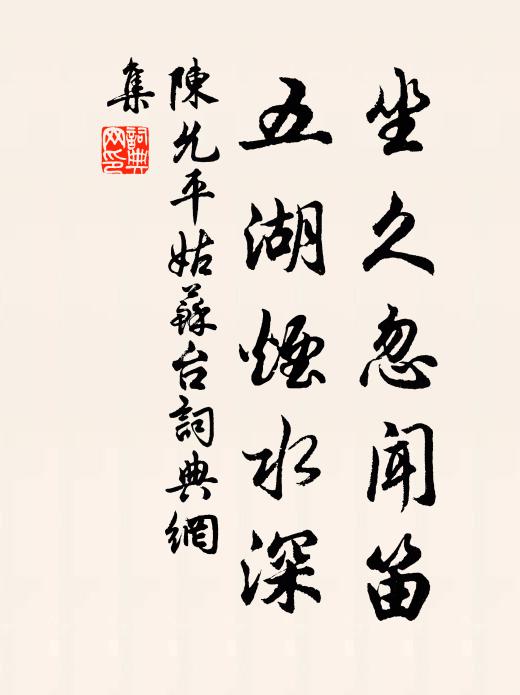 坐久忽聞笛
五湖煙水深
陳允平姑蘇台詞典網
集
詞典网印